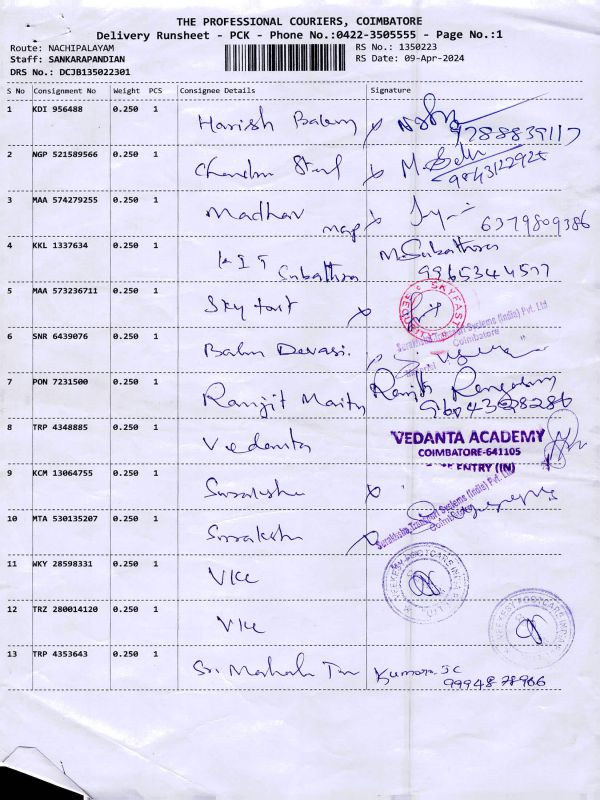 THE PROFESSIONAL COURIERS, COIMBATORE
Delivery Runsheet - PCK - Phone No.:0422-3505555 - Page No.:1
Route: NACHIPALAYAM RS No.: 1350223
Staff: SANKARAPANDIAN RS Date: 09-Apr-2024
DRS No.: DCJB135022301
S No Consignment No Weight PCS Consignee Details Signature
1 KDI 956488 0.250 1 Harish
9788839117
2 NGP 521589566 0.250 1 Chandra Steel
9843122925
3 MAA 574279255 0.250 1 Madhav
6379809386
4 KKL 1337634 0.250 1 M. Subathra
Subathra
5 MAA 573236711 0.250 1 Sky fast
SKYFAST
Surakksha Transport Systems (India) Pvt. Ltd
Coimbatore
6 SNR 6439076 0.250 1 Balm Devasi.
7 PON 7231500 0.250 1 Ranjit Maity Ranjit
8 TRP 4348885 0.250 1 Vedanta
VEDANTA ACADEMY
COIMBATORE-641105
ENTRY (IN)
9 KCM 13064755 0.250 1 Suraksha
10 MTA 530135207 0.250 1 Suraksha
Surakksha Transport Systems (India) Pvt. Ltd
Coimbatore
11 WKY 28598331 0.250 1 VKC
12 TRZ 280014120 0.250 1 VKC
13 TRP 4353643 0.250 1 Sri Mahali Kumar
99948 78966